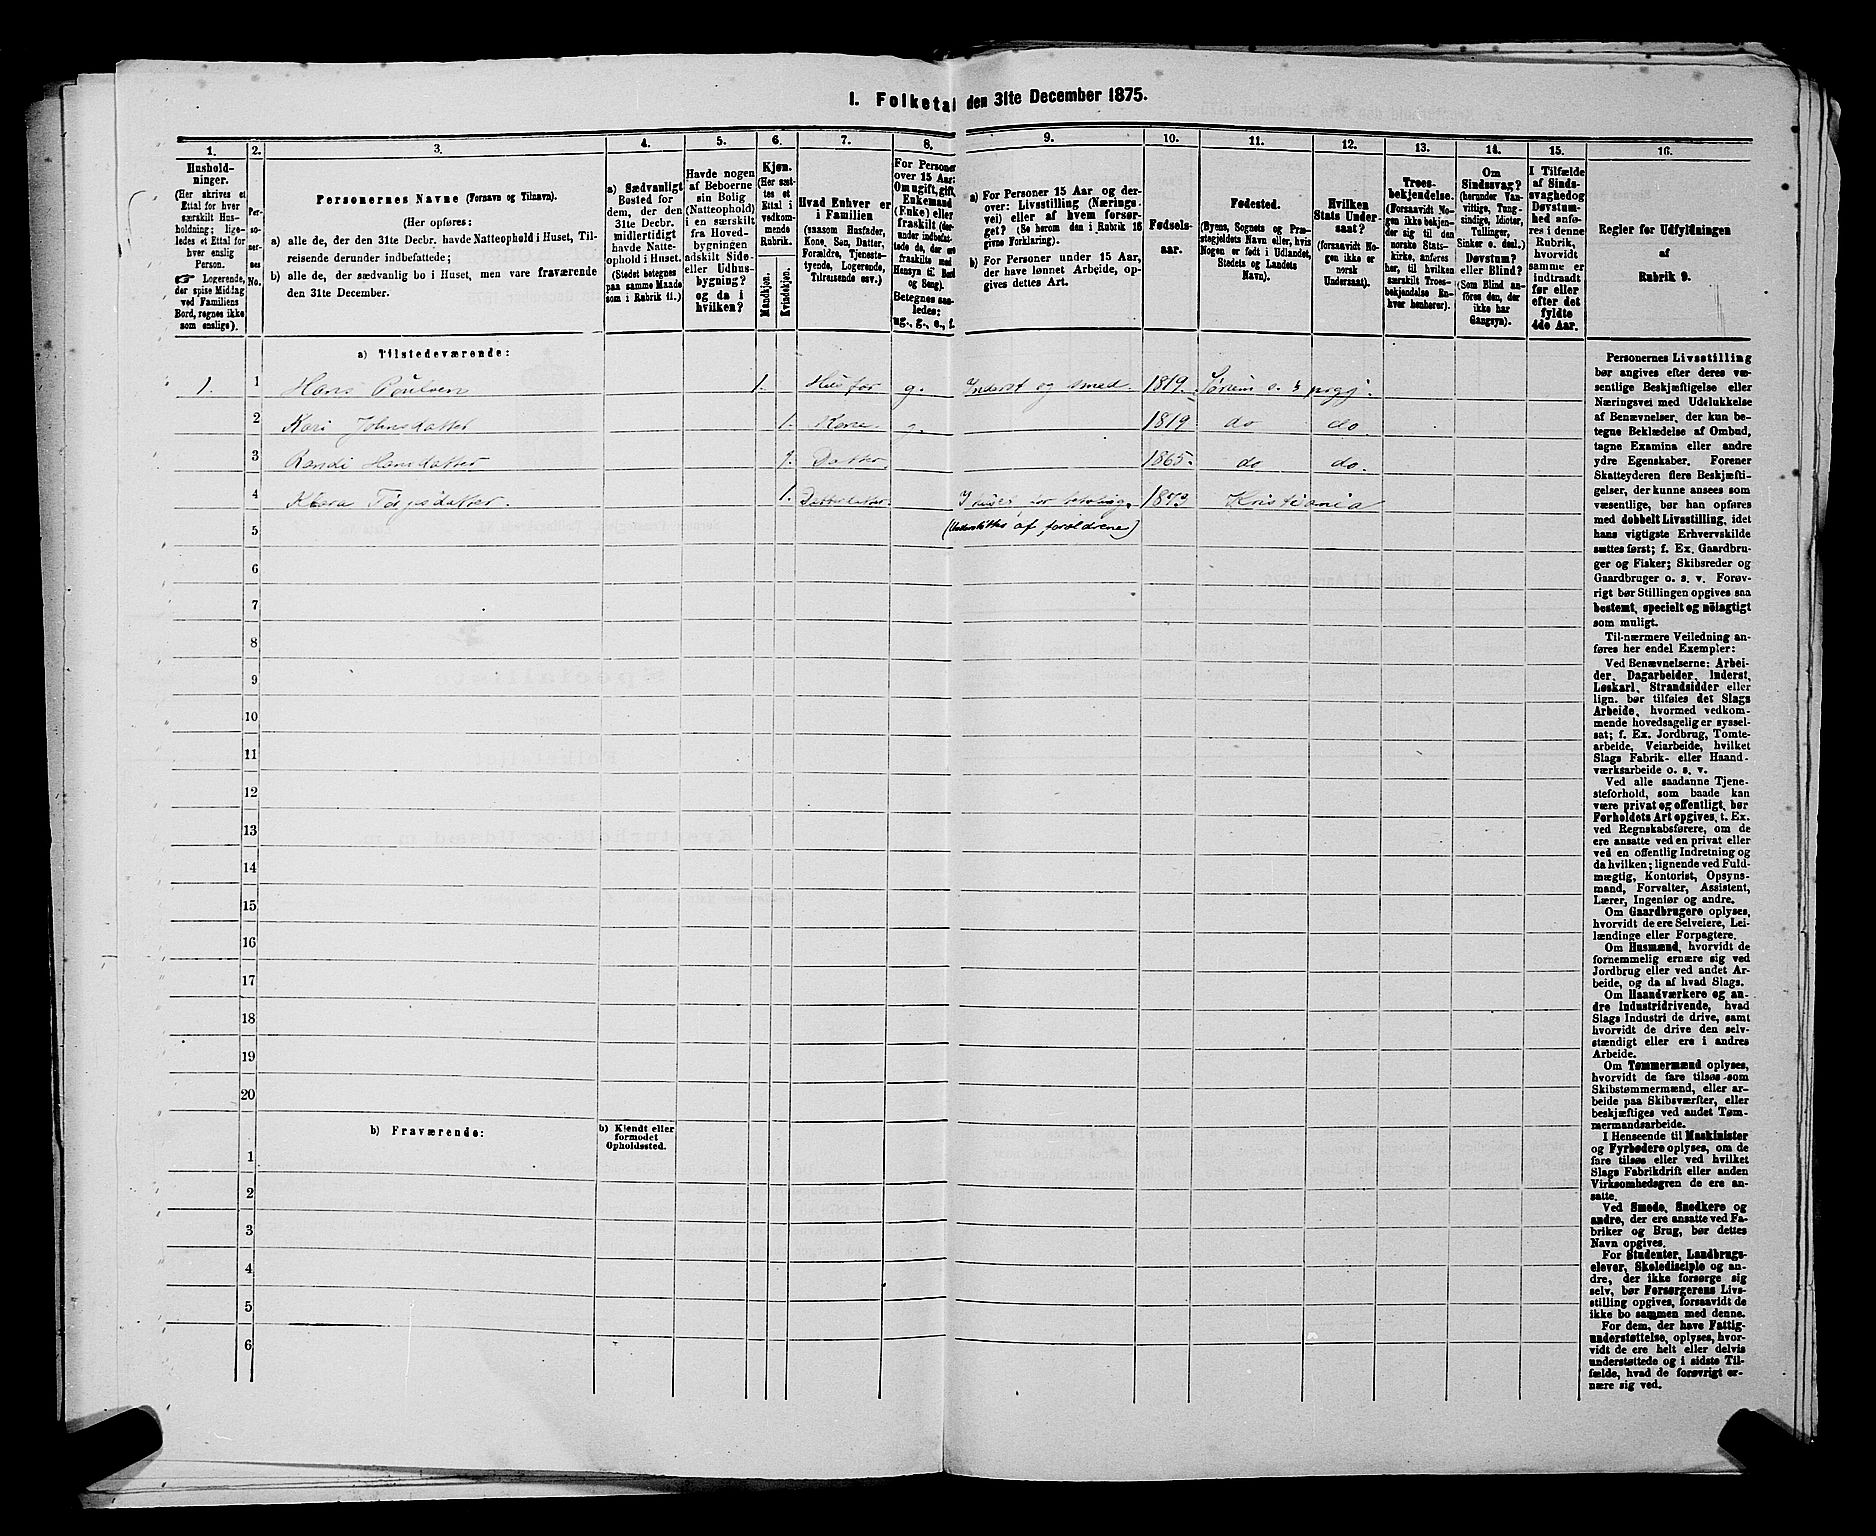 I. Folketal den 31te December 1875.
1. 2. 3. 4. 5. 6. 7. 8. 9. 10. 11. 12. 13. 14. 15. 16.
Hushold-
ninger.
(Her skrives et
Ettal for hver
særskilt Hus-
holdning; lige-
ledes et Ettal for
hver enslig
Person.
☛ Logerende,
der spise Middag
ved Familiens
Bord, regnes ikke
som enslige).
Per-
soner-
nes
No.
Personernes Navne (Fornavn og Tilnavn).
(Her opføres:
a) alle de, der den 31te Decbr. havde Natteophold i Huset, Til-
reisende derunder indbefattede;
b) alle de, der sædvanlig bo i Huset, men vare fraværende
den 31te December.
a) Sædvanligt
Bosted for
dem, der den
31te Decbr.
midlertidigt
havde Natte-
ophold i Huset.
(Stedet betegnes
paa samme Maade
som i Rubrik 11.)
Havde nogen
af Beboerne
sin Bolig
(Natteophold)
i en særskilt
fra Hoved-
bygningen
adskilt Side-
eller Udhus-
bygning?
og da i
hvilken?
Kjøn.
(Her sæt-
tes et
Ettal i
vedkom-
mende
Rubrik.
Mandkjøn.
Kvindekjøn.
Hvad Enhver er
i Familien
(saasom Husfader,
Kone, Søn, Datter,
Forældre, Tjeneste-
tyende, Logerende,
Tilreisende osv.)
For Personer
over 15 Aar:
Om ugift, gift,
Enkemand
(Enke) eller
fraskilt (her-
under indbefat-
tede de, der ere
fraskilte med
Hensyn til Bord
og Seng).
Betegnes saa-
ledes:
ug., g., e., f.
a) For Personer 15 Aar og der-
over: Livsstilling (Nærings-
vei) eller af hvem forsør-
get? (Se herom den i Rubrik 16
givne Forklaring).
b) For Personer under 15 Aar,
der have lønnet Arbejde, op-
gives dettes Art.
Fødsels-
aar.
Fødested.
(Byens, Sognets og Præ-
stegjeldets Navn eller, hvis
Nogen er født i Udlandet,
Stedets og Landets
Navn).
Hvilken
Stats Under-
saat?
(forsaavidt No-
gen ikke er
norsk
Undersaat).
Troes-
bekjendelse.
(Forsaavidt No-
gen ikke bekjen-
der sig til den
norske Stats-
kirke, anføres
her, til hvilken
særskilt Troes-
bekjendelse En-
hver henhører).
Om
Sindssvag?
(herunder Van-
vittige, Tung-
sindige, Idioter,
Tullinger,
Sinker o. desl.)
Døvstum?
eller Blind?
(Som Blind an-
føres den, der
ikke har
Gangsyn).
I Tilfælde
af Sinds-
svaghed og
Døvstum-
hed anfø-
res i denne
Rubrik,
hvorvidt
samme er
indtraadt
før eller
efter det
fyldte
4de Aar.
Regler for Udfyldningen
af
Rubrik 9.
a) Tilstedeværende:
1. 1 Hans Poulsen 1. Husfar g. Inderst og smed. 1819. Sørum s. & prgj.
2 Kari Johnsdatter 1. Kone 1819 do do.
3 Randi Hansdatter 1. Datter. 1865. do do.
4 Klara 1. Datterdatter. 1873 Kristiania
5 af foreldrene)
6
7
8
9
10
11
12
13
14
15
16
17
18
19
20
b) Fraværende:
b) Kjendt eller
formodet
Opholdssted.
1
2
3
4
5
6
Personernes Livsstilling
bør angives efter deres væ-
sentlige Beskjæftigelse eller
Næringsvei med Udelukkelse
af Benævnelser, der kun be-
tegne Beklædelse af Ombud,
tagne Examina eller andre
ydre Egenskaber. Forener
Skatteyderen flere Beskjæfti-
gelser, der kunne ansees som
væsentlige, bør han opføres
med dobbelt Livsstilling, idet
hans vigtigste Erhvervskilde
sættes først; f. Ex. Gaardbru-
ger og Fisker; Skibsreder og
Gaardbruger o. s. v. Forøv-
rigt bør Stillingen opgives saa
bestemt, specielt og nöiagtigt
som muligt.
Til nærmere Veiledning an-
føres her endel Exempler:
Ved Benævnelserne: Arbei-
der, Dagarbeider, Inderst,
Løskarl, Strandsidder eller
lign. bør tilføies det Slags
Arbeide, hvormed vedkom-
mende hovedsagelig er syssel-
sat; f. Ex. Jordbrug, Tomte-
arbeide, Veiarbeide, hvilket
Slags Fabrik- eller Haand-
værksarbeide o. s. v.
Ved alle saadanne Tjene-
steforhold, som baade kan
være privat og offentligt, bør
Forholdets Art opgives, t. Ex.
ved Regnskabsførere, om de
ere ansatte ved en privat eller
ved en offentlig Indretning og
da hvilken; lignende ved Fuld-
mægtig, Kontorist, Opsyns-
mand, Forvalter, Assistent,
Lærer, Ingeniør og andre.
Om Gaardbrugere oplyses,
hvorvidt de ere Selveiere, Lei-
lændinge eller Forpagtere.
Om Husmænd, hvorvidt de
fornemmelig ernære sig ved
Jordbrug eller ved andet Ar-
beide, og da af hvad Slags.
Om Haandværkere og an-
dre Industridrivende, hvad
Slags Industri de drive, samt
hvorvidt de drive den selv-
stændigt eller ere i andres
Arbeide.
Om Tømmermænd oplyses,
hvorvidt de fare tilsøs som
Skibstømmermænd, eller ar-
beide paa Skibsværfter, eller
beskjæftiges ved andet Tøm-
mermandsarbeide.
I Henseende til Maskinister
og Fyrbødere oplyses, om de
fare tilsøs eller ved hvilket
Slags Fabrikdrift eller anden
Virksomhedsgren de ere an-
satte.
Ved Smede, Snedkere og
andre, der ere ansatte ved Fa-
briker og Brug, bør dettes
Navn opgives.
For Studenter, Landbrugs-
elever, Skoledisciple og an-
dre, der ikke forsørge sig
selv, bør Forsørgerens Livs-
stilling opgives, forsaavidt de
ikke bo sammen med denne.
For dem, der have Fattig-
understøttelse, oplyses, hvor-
vidt de ere helt eller delvis
understøttede og i sidste Til-
fælde, hvad de forøvrigt er-
nære sig ved.